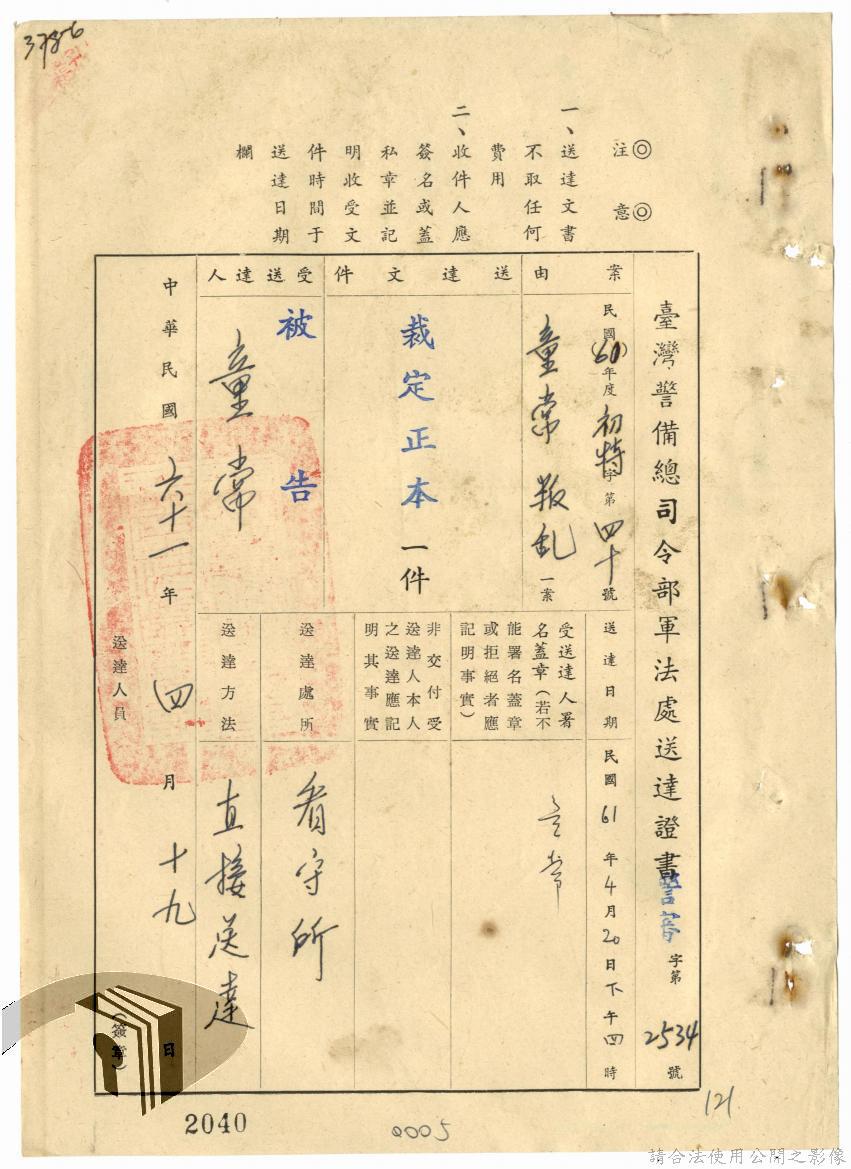 3786
◎注意◎
一、送達文書
不取任何
費用
二、收件人應
簽名或蓋
私章並記
明收受文
件時間于
送達日期
欄
臺灣警備總司令部軍法處送達證書 警審字第2534號
案由
民國(60)年度初特字第四十號
童常叛乱一案
送達文件
裁定正本一件
受送達人
被告
童常
送達日期
民國61年4月20日下午四時
受送達人署
名蓋章(若不
能署名蓋章
或拒絕者應
記明事實)
童常
非交付受
送達人本人
之送達應記
明其事實
送達處所
看守所
送達方法
直接送達
中華民國六十一年四月十九日
送達人員
(簽章)
2040
0005
121
請合法使用公開之影像